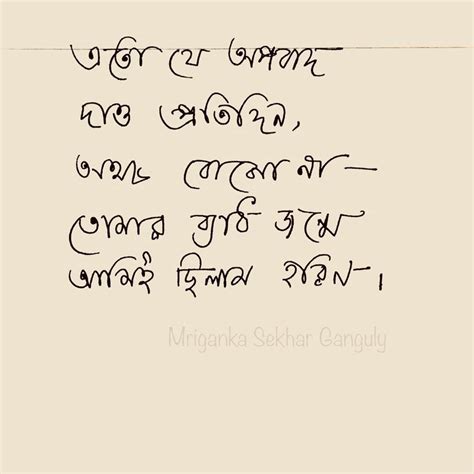 এতো যে অপবাদ
দাও প্রতিদিন,
অথচ বোলো না —
তোমার ব্যাধ জন্মে
আমিই ছিলাম হরিন।
Mriganka Sekhar Ganguly